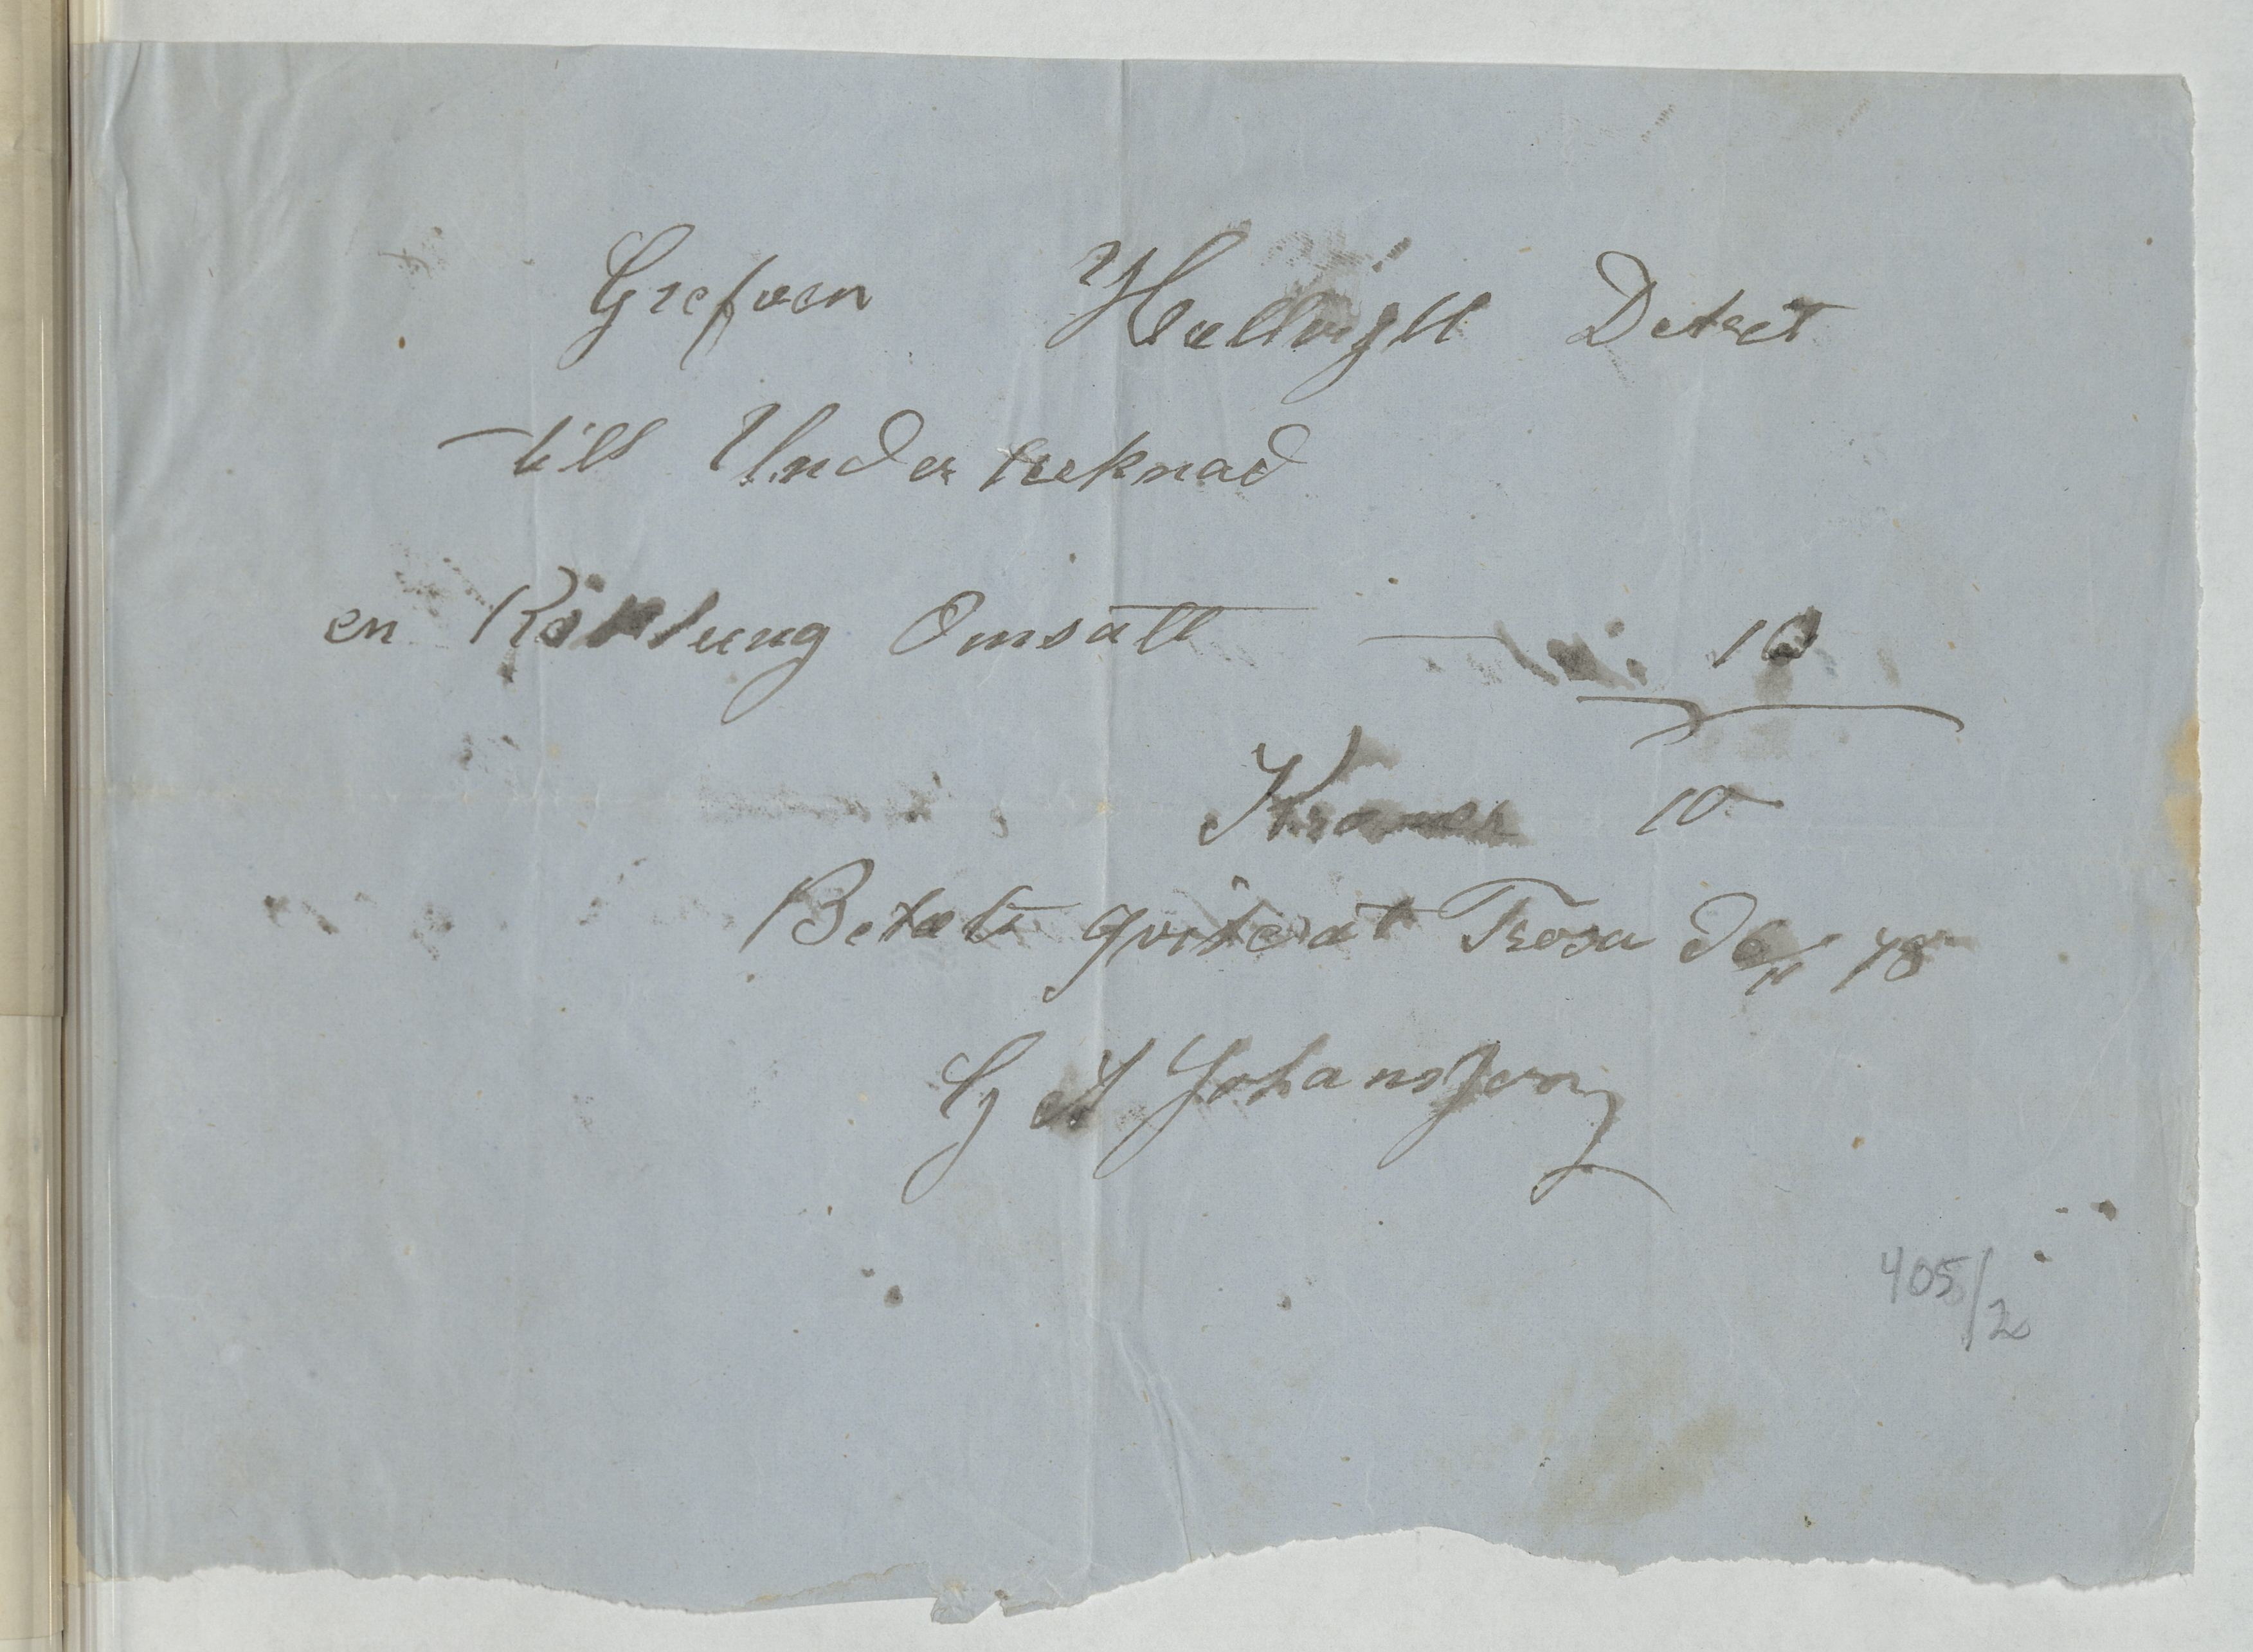 Grefven Hallvyll Debet
till Undertecknad
en Röklung Omsatt — 10
Kronor 10
Betalt qviterat Trosa d 6/11 78
G A Johansson
405/2